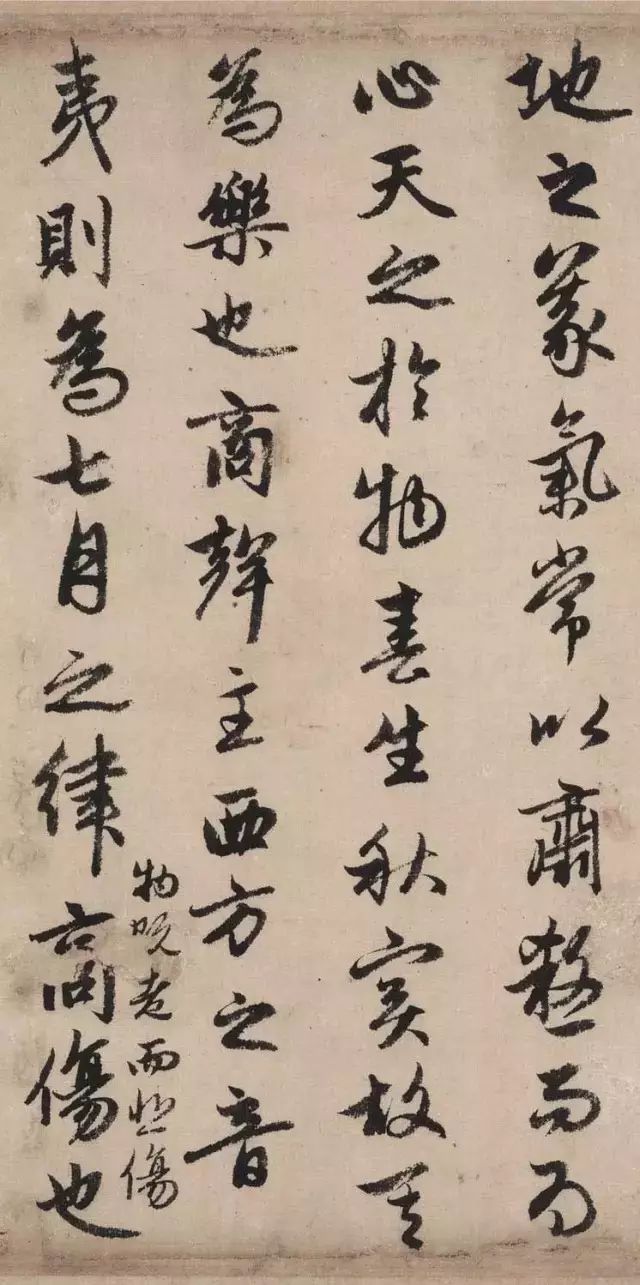 地之義氣常以肅殺而為
心天之於物春生秋實故其
為樂也商聲主西方之音
物既老而悲傷
夷則為七月之律商傷也